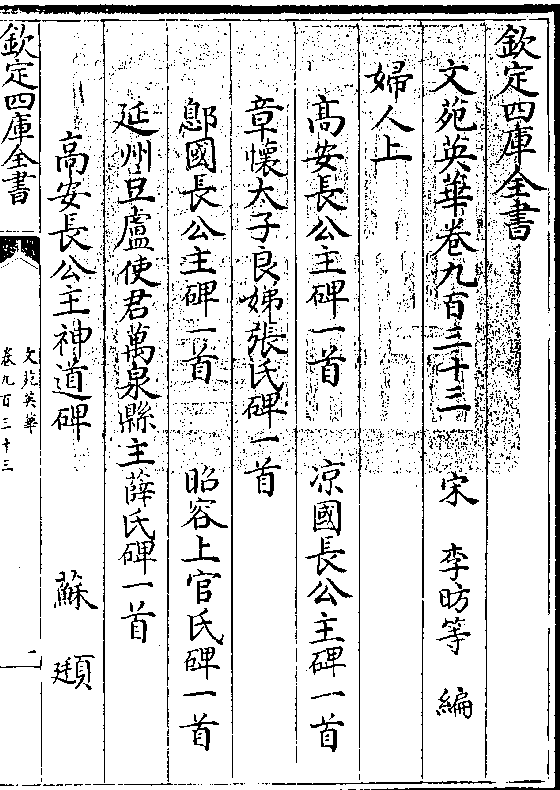 欽定四庫全書
文苑英華卷九百三十三 宋 李昉等 編
婦人上
高安長公主碑一首 凉國長公主碑一首
章懷太子良娣張氏碑一首
鄎國長公主碑一首 昭容上官氏碑一首
延州豆盧使君萬泉縣主薛氏碑一首
高安長公主神道碑 蘇頲
欽定四庫全書
文苑英華
卷九百三十三
一